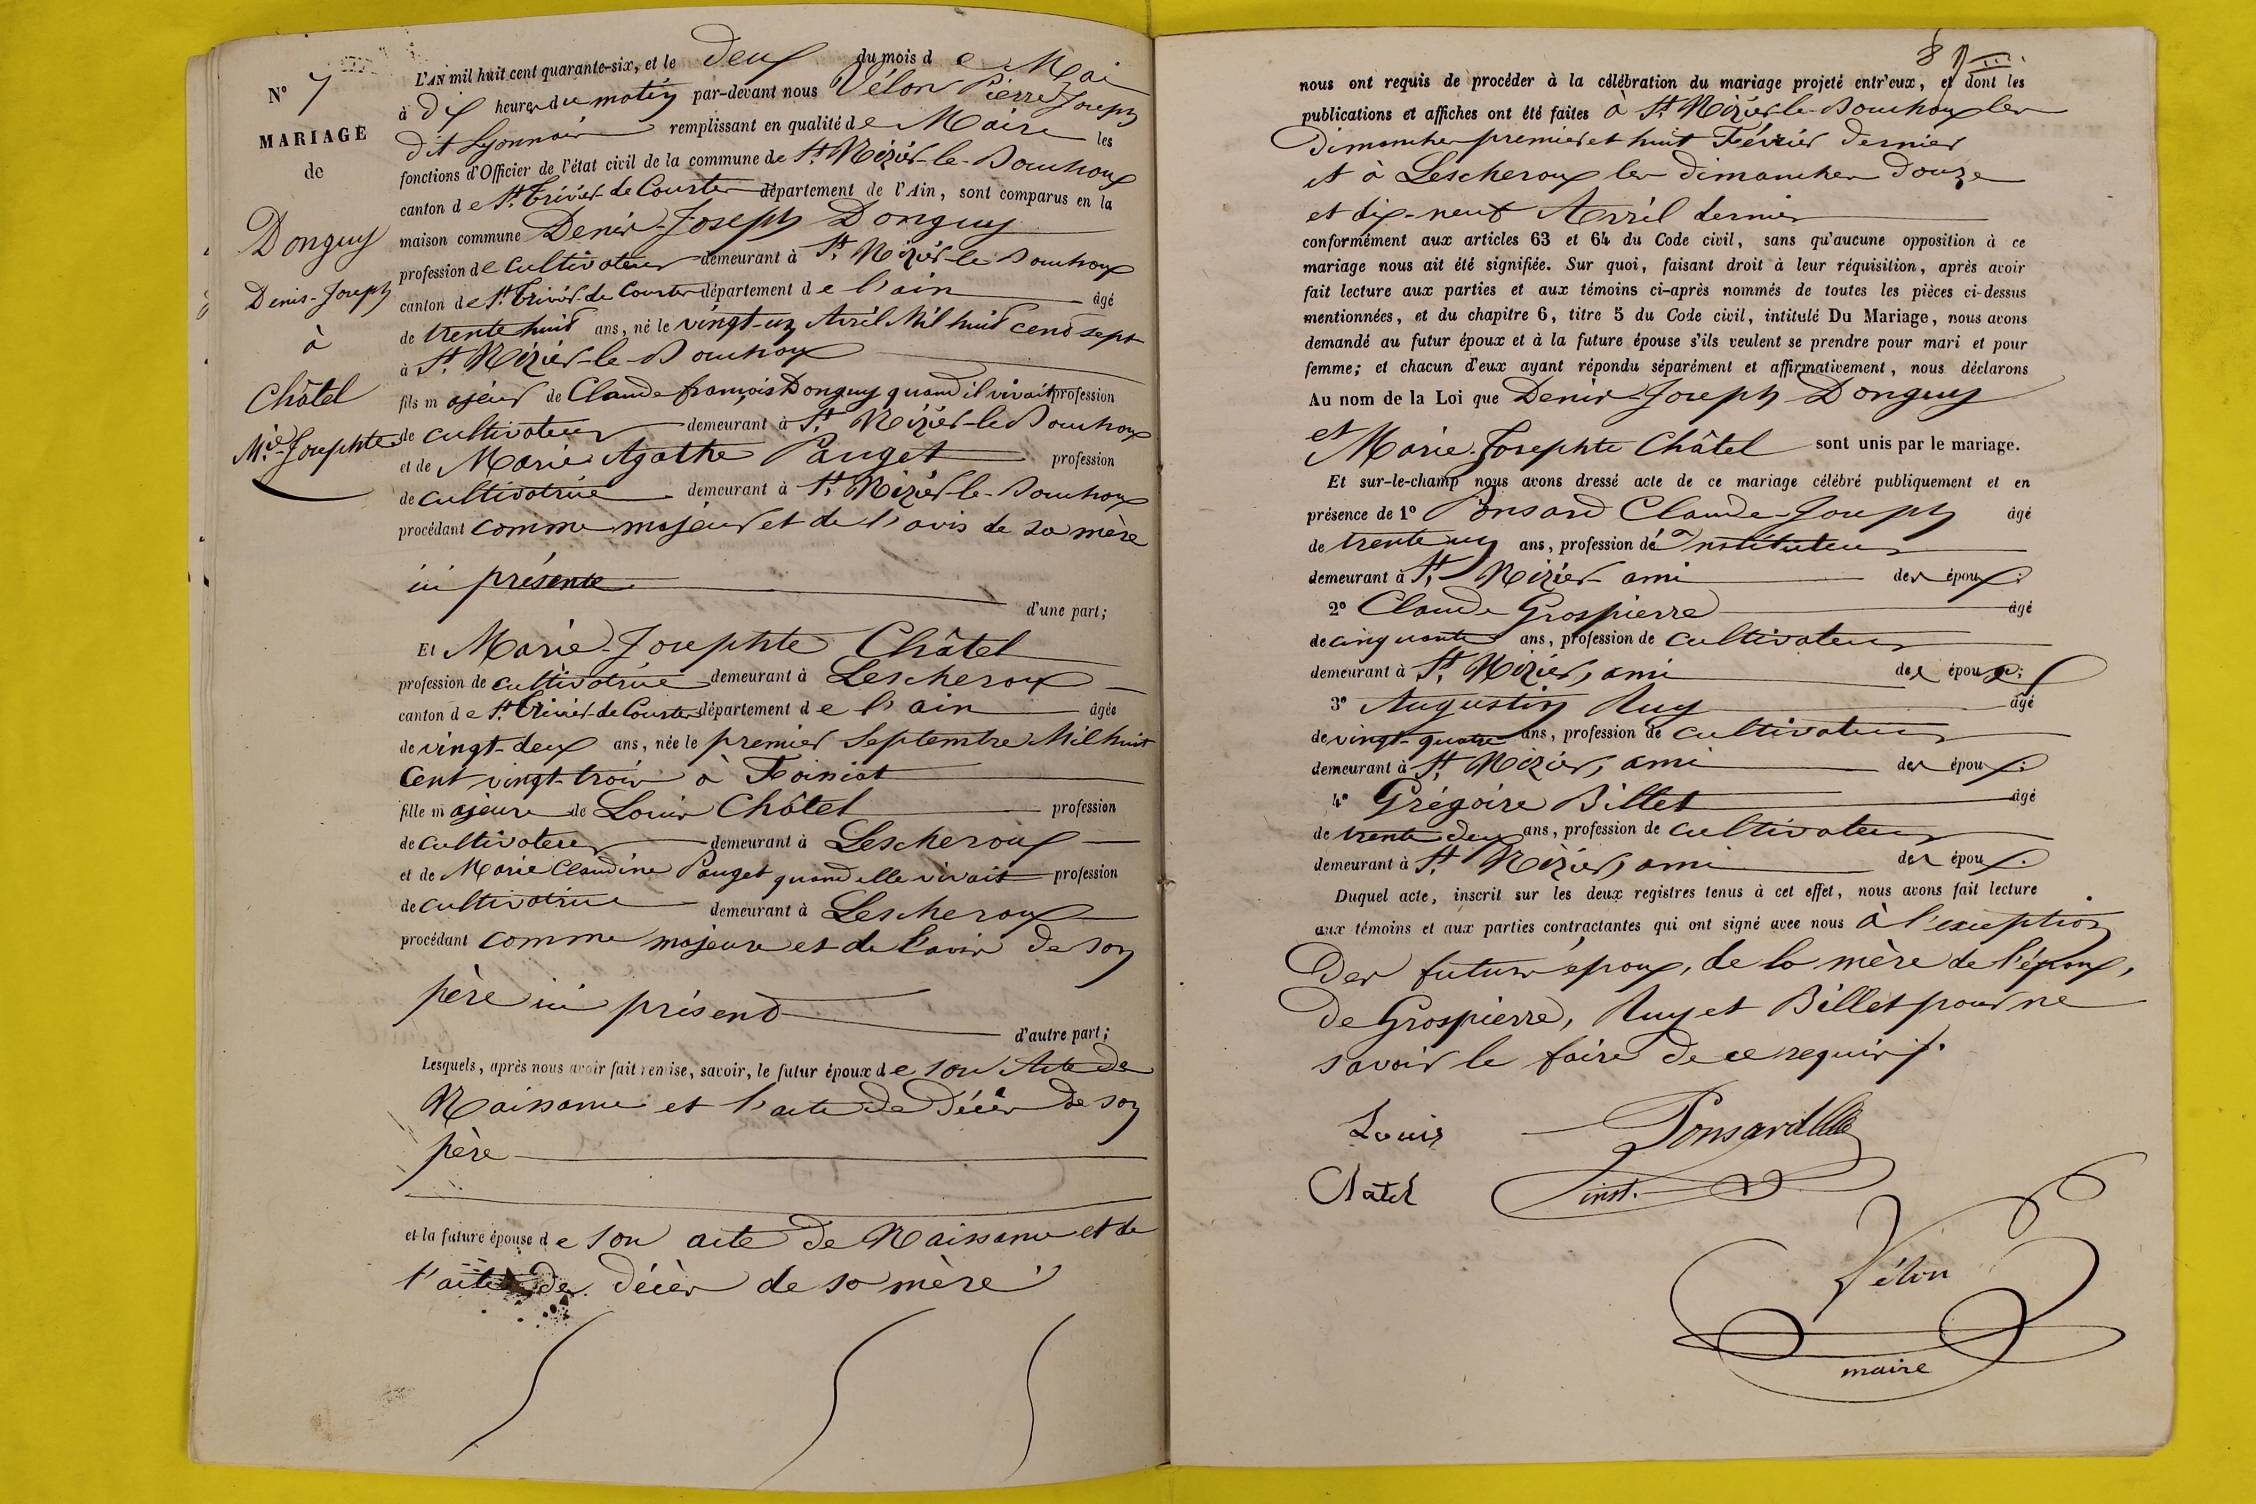 N° 7
MARIAGE
de
Donguy
Denis-Joseph
à
Châtel
Mie-Josephte
L'AN mil huit cent quarante-six, et le deux du mois de Mai
à dix heures du matin par-devant nous Vélon Pierre Joseph
dit Lyonnais remplissant en qualité de Maire les
fonctions d'Officier de l'état civil de la commune de St. Nizier-le-Bouchoux
canton de St. Trivier-de-Courtes département de l'Ain, sont comparus en la
maison commune Denis-Joseph Donguy
profession de cultivateur demeurant à St. Nizier-le-Bouchoux
canton de St. Trivier-de-Courtes département de l'ain âgé
de trente huit ans, né le vingt-un Avril Mil huit cent sept
à St. Nizier-le-Bouchoux
fils majeur de Claude françois Donguy quand il vivait profession
de cultivateur demeurant à St. Nizier-le-Bouchoux
et de Marie Agathe Pauget profession
de cultivatrice demeurant à St. Nizier-le-Bouchoux
procédant comme majeur et de l'avis de sa mère
ici présente
d'une part;
Et Marie-Josephte Châtel
profession de cultivatrice demeurant à Lescheroux
canton de St. Trivier-de-Courtes département de l'ain âgée
de vingt-deux ans, née le premier Septembre Mil huit
Cent vingt-trois à Foissiat
fille majeure de Louis Châtel profession
de cultivateur demeurant à Lescheroux
et de Marie Claudine Pauget quand elle vivait profession
de cultivatrice demeurant à Lescheroux
procédant comme majeure et de l'avis de son
père ici présent
d'autre part;
Lesquels, après nous avoir fait remise, savoir, le futur époux de son Acte de
Naissance et l'acte de Décès de son
père
et la future épouse de son acte de Naissance et de
l'acte de décès de sa mère
nous ont requis de procéder à la célébration du mariage projeté entr'eux, et dont les
publications et affiches ont été faites à St. Nizier-le-Bouchoux les
Dimanches premier et huit Février dernier
et à Lescheroux les dimanches douze
et dix-neuf Avril dernier
conformément aux articles 63 et 64 du Code civil, sans qu'aucune opposition à ce
mariage nous ait été signifiée. Sur quoi, faisant droit à leur réquisition, après avoir
fait lecture aux parties et aux témoins ci-après nommés de toutes les pièces ci-dessus
mentionnées, et du chapitre 6, titre 5 du Code civil, intitulé Du Mariage, nous avons
demandé au futur époux et à la future épouse s'ils veulent se prendre pour mari et pour
femme; et chacun d'eux ayant répondu séparément et affirmativement, nous déclarons
Au nom de la Loi que Denis-Joseph Donguy
et Marie-Josephte Châtel sont unis par le mariage.
Et sur-le-champ nous avons dressé acte de ce mariage célébré publiquement et en
présence de 1° Ponsard Claude-Joseph âgé
de trente un ans, profession d'Instituteur
demeurant à St. Nizier ami des époux;
2° Claude Grospierre âgé
de cinquante ans, profession de cultivateur
demeurant à St. Nizier, ami des époux;
3° Augustin Ruy âgé
de vingt-quatre ans, profession de cultivateur
demeurant à St. Nizier, ami des époux;
4° Grégoire Billet âgé
de trente deux ans, profession de cultivateur
demeurant à St. Nizier, ami des époux.
Duquel acte, inscrit sur les deux registres tenus à cet effet, nous avons fait lecture
aux témoins et aux parties contractantes qui ont signé avec nous à l'exception
Des futurs époux, de la mère de l'époux,
De Grospierre, Ruy et Billet pour ne
savoir le faire de ce requis.
Louis
Chatel
Ponsard
inst.
Vélon
maire